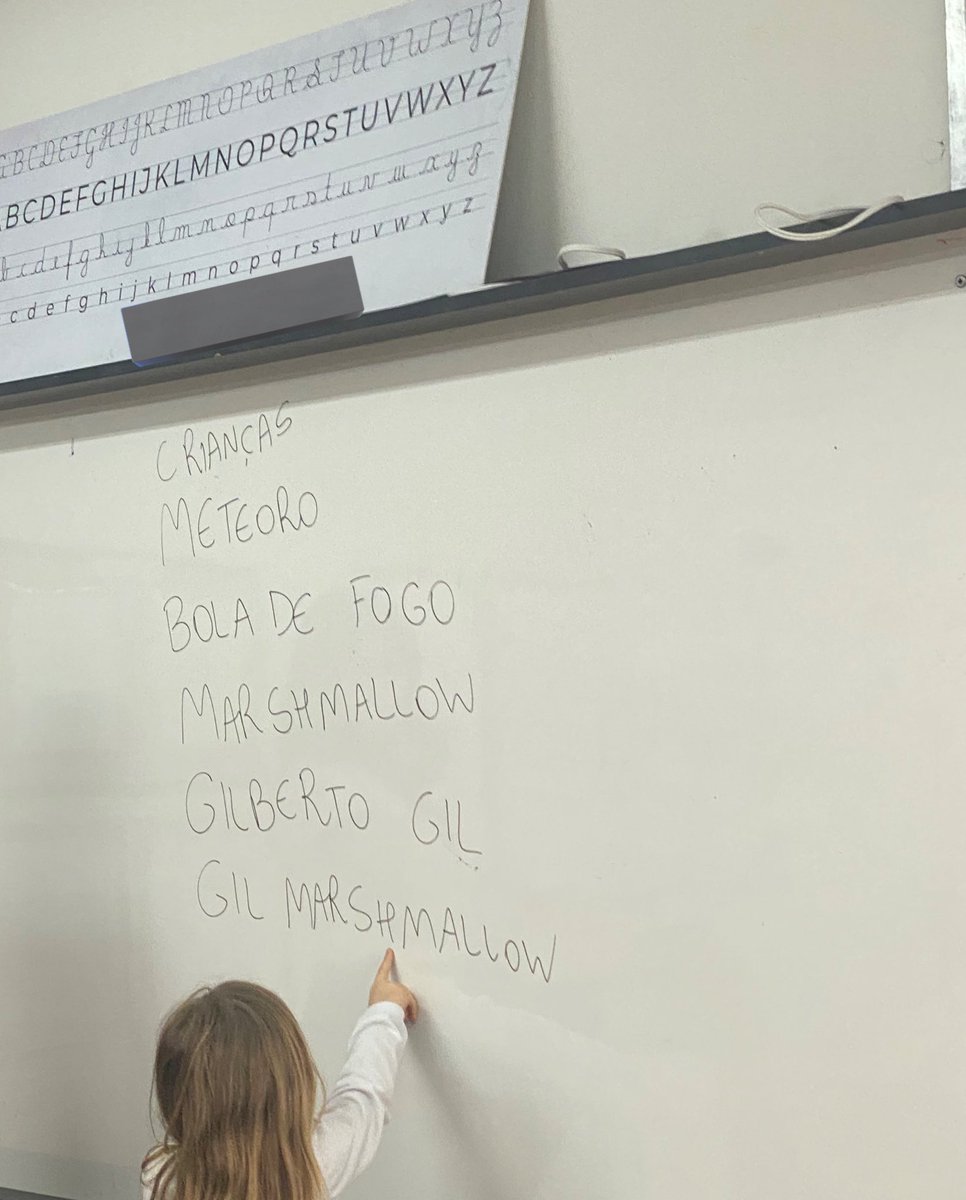 ABCDEFGHIJKLMNOPQRSTUVWXYZ
BCDEFGHIJKLMNOPQRSTUVWXYZ
bcdefghijklmnopqrstuvwxyz
c d e f g h i j k l m n o p q r s t u v w x y z
CRIANÇAS
METEORO
BOLA DE FOGO
MARSHMALLOW
GILBERTO GIL
GIL MARSHMALLOW